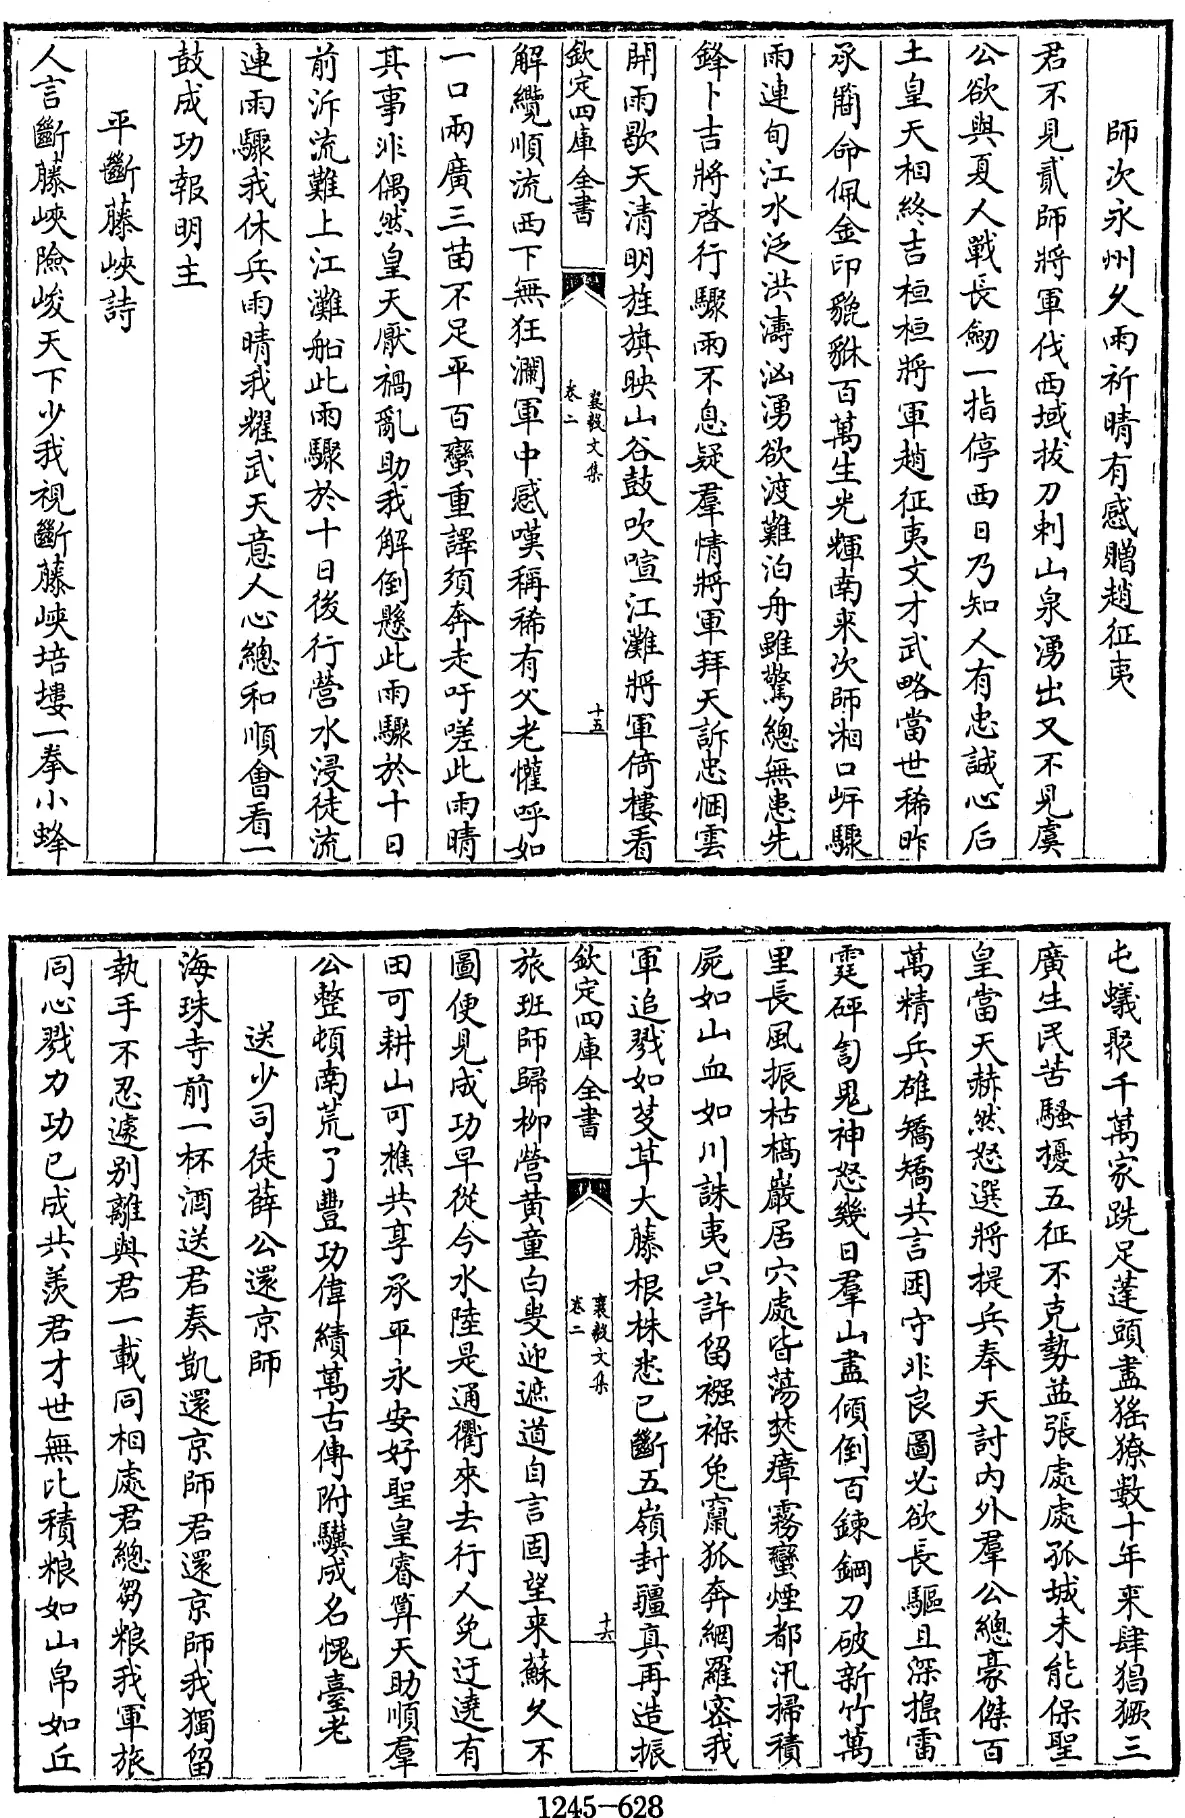 師次永州久雨祈晴有感贈趙征夷
君不見貳師將軍伐西域拔刀刺山泉湧出又不見虞
公欲與夏人戰長劒一指停西日乃知人有忠誠心后
土皇天相終吉桓桓將軍趙征夷文才武略當世稀昨
承簡命佩金印貔貅百萬生光輝南来次師湘口岸驟
雨連旬江水泛洪濤洶湧欲渡難泊舟雖驚總無患先
鋒卜吉將啓行驟雨不息疑羣情將軍拜天訴忠悃雲
開雨歇天清明旌旗映山谷鼓吹喧江灘將軍倚樓看
欽定四庫全書
襄毅文集
卷二
十五
解纜順流西下無狂瀾軍中感嘆稱稀有父老懽呼如
一口兩廣三苗不足平百蠻重譯須奔走吁嗟此雨晴
其事非偶然皇天厭禍亂助我解倒懸此雨驟於十日
前泝流難上江灘船此雨驟於十日後行營水浸徒流
連雨驟我休兵雨晴我耀武天意人心總和順會看一
鼓成功報明主
平斷藤峽詩
人言斷藤峽險峻天下少我視斷藤峽培塿一拳小蜂
屯蟻聚千萬家跣足蓬頭盡猺獠數十年来肆猖獗三
廣生民苦騷擾五征不克勢益張處處孤城未能保聖
皇當天赫然怒選將提兵奉天討内外羣公總豪傑百
萬精兵雄矯矯共言困守非良圖必欲長驅且深搗雷
霆砰訇鬼神怒幾日羣山盡傾倒百鍊鋼刀破新竹萬
里長風振枯槁巖居穴處皆蕩焚瘴霧蠻煙都汛掃積
屍如山血如川誅夷只許留襁褓兔竄狐奔網羅密我
軍追戮如芟草大藤根株悉已斷五嶺封疆真再造振
欽定四庫全書
襄毅文集
卷二
十六
旅班師歸柳營黄童白叟迎遮道自言固望来蘇久不
圖便見成功早從今水陸是通衢來去行人免迂遶有
田可耕山可樵共享承平永安好聖皇睿算天助順羣
公整頓南荒了豐功偉績萬古傳附驥成名愧臺老
送少司徒薛公還京師
海珠寺前一杯酒送君奏凱還京師君還京師我獨留
執手不忍遽别離與君一載同相處君總芻粮我軍旅
同心戮力功已成共羨君才世無比積粮如山帛如丘
1245-628